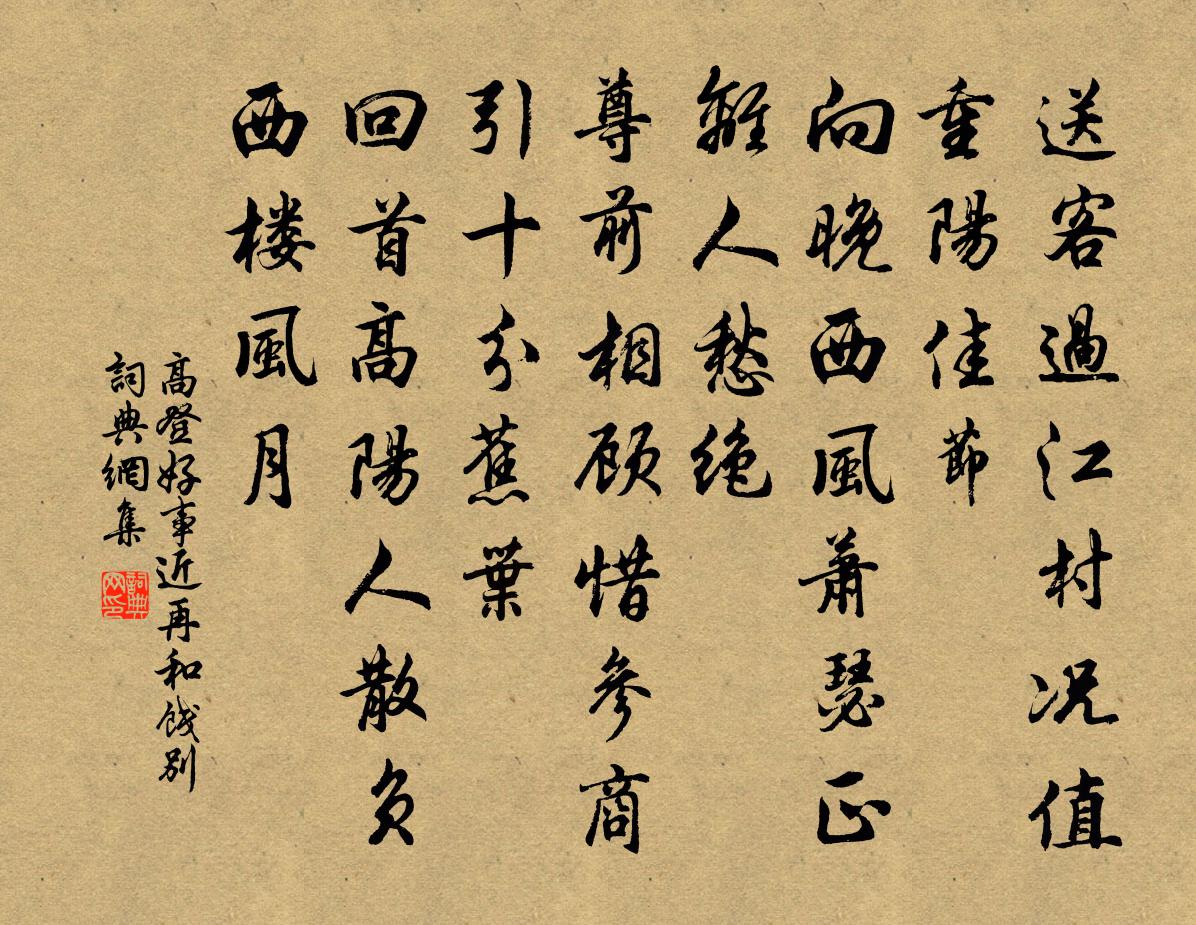 送客過江村况值
重陽佳節
向晚西風蕭瑟正
離人愁绝
尊前相顾惜參商
引十分蕉葉
回首高陽人散負
西楼風月
高登好事近再和餞别
詞典網集
詞典网印